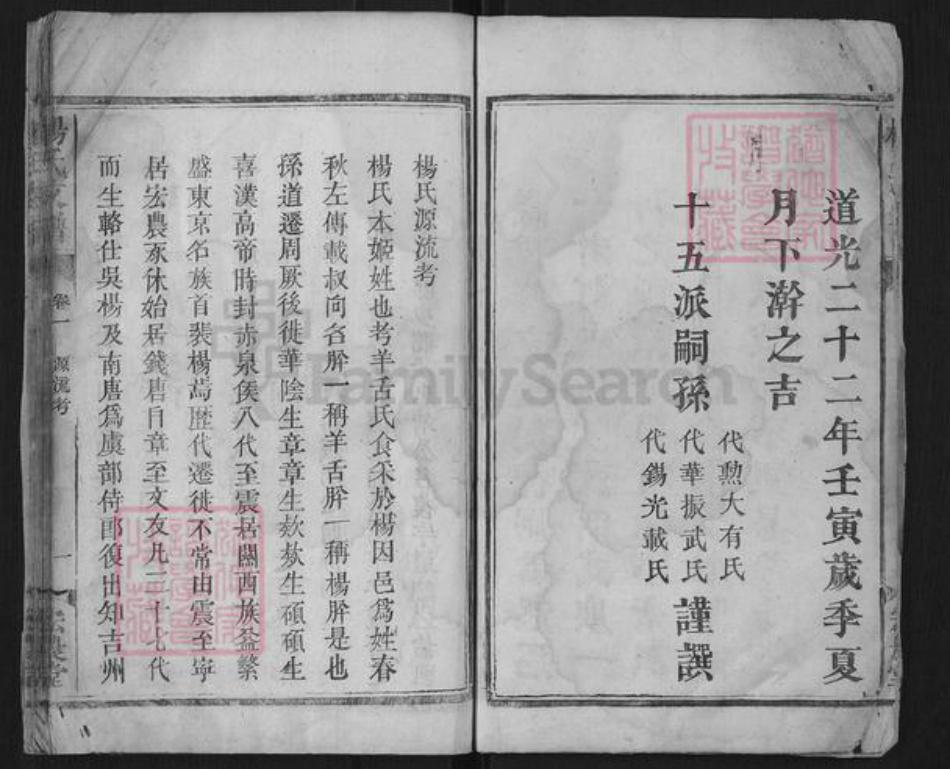 道光二十二年壬寅歲季夏
月下澣之吉
十五派嗣孫
代勲大有氏
代華振武氏
代錫光載氏
謹譔
楊氏源流考
楊氏本姬姓也考羊舌氏食采於楊因邑爲姓春
秋左傳載叔向名肸一稱羊舌肸一稱楊肸是也
孫道遷周厥後徙華陰生章章生欵欵生碩碩生
喜漢高帝時封赤泉侯八代至震居關西族益繁
盛東京名族首裴楊焉歷代遷徙不常由震至寕
居宏農豕休始居錢唐自章至文友凡二十七代
而生輅仕吳楊及南唐爲虞部侍郎復出知吉州
楊氏
卷一
源流考
一
FamilySearch